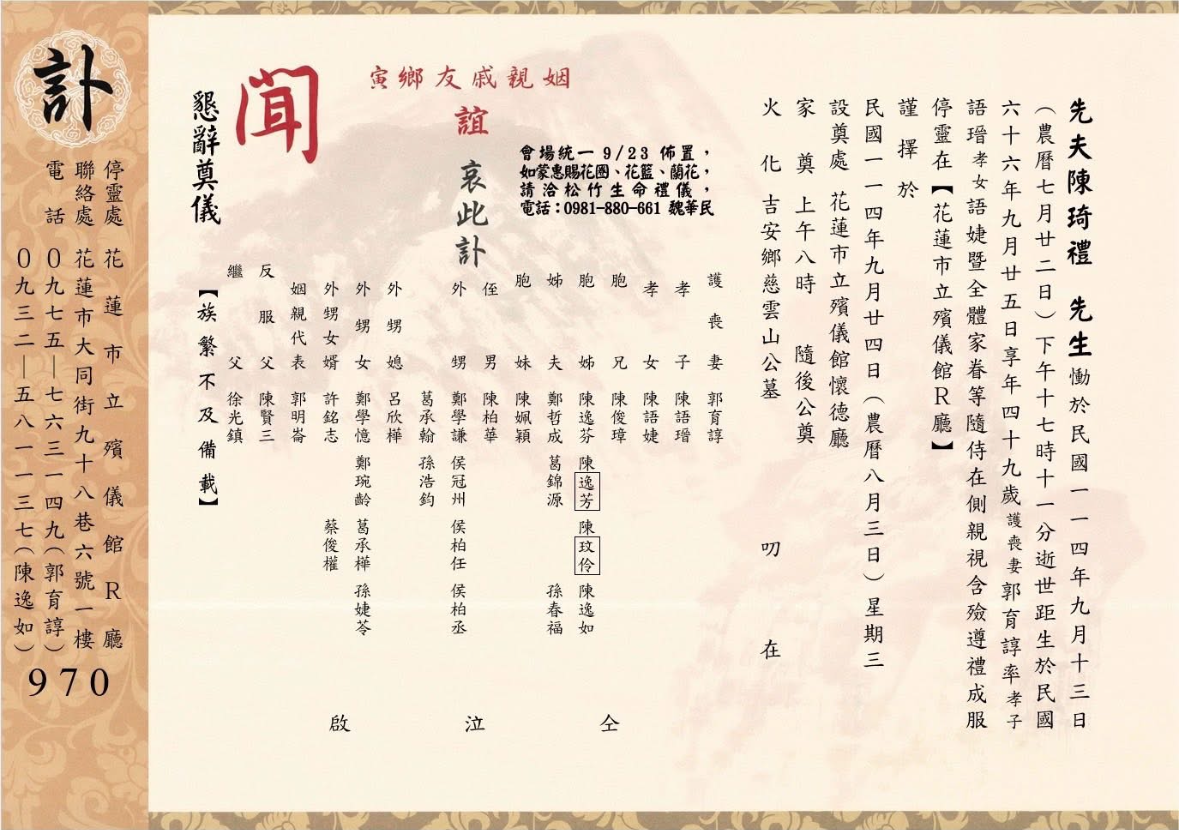 先夫陳琦禮 先生慟於民國一一四年九月十三日
（農曆七月廿二日）下午十七時十一分逝世距生於民國
六十六年九月廿五日享年四十九歲護喪妻郭育諄率孝子
語瑨孝女語婕暨全體家眷等隨侍在側親視含殮遵禮成服
停靈在【花蓮市立殯儀館R廳】
謹擇於
民國一一四年九月廿四日（農曆八月三日）星期三
設奠處 花蓮市立殯儀館懷德廳
家奠 上午八時 隨後公奠
火化 吉安鄉慈雲山公墓
叨在
寅鄉友戚親姻
誼
會場統一 9/23 佈置，
如蒙惠賜花圈、花籃、蘭花，
請洽松竹生命禮儀，
電話：0981-880-661 魏華民
哀此訃
聞
懇辭奠儀
護喪妻 郭育諄
孝子 陳語瑨
孝女 陳語婕
胞兄 陳俊璋
胞姊 陳逸芬 陳逸芳 陳玟伶 陳逸如
姊夫 鄭哲成 葛錦源 孫春福
胞妹 陳姵穎
侄男 陳柏華
外甥 鄭學謙 侯冠州 侯柏任 侯柏丞
葛承翰 孫浩鈞
外甥媳 呂欣樺
外甥女 鄭學憶 鄭琬齡 葛承樺 孫婕苓
外甥女婿 許銘志 蔡俊權
姻親代表 郭明崙
反服父 陳賢三
繼父 徐光鎮
【族繁不及備載】
仝泣啟
訃
停靈處 花蓮市立殯儀館R廳
聯絡處 花蓮市大同街九十八巷六號一樓
電話 0九七五—七六三一四九（郭育諄）
0九三二—五八一一三七（陳逸如）
970